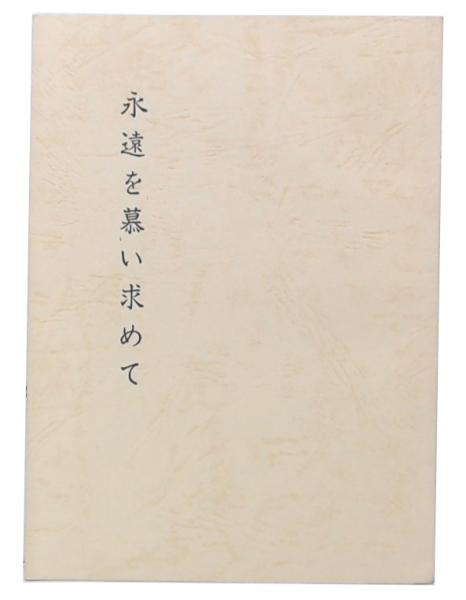 永遠を慕い求めて